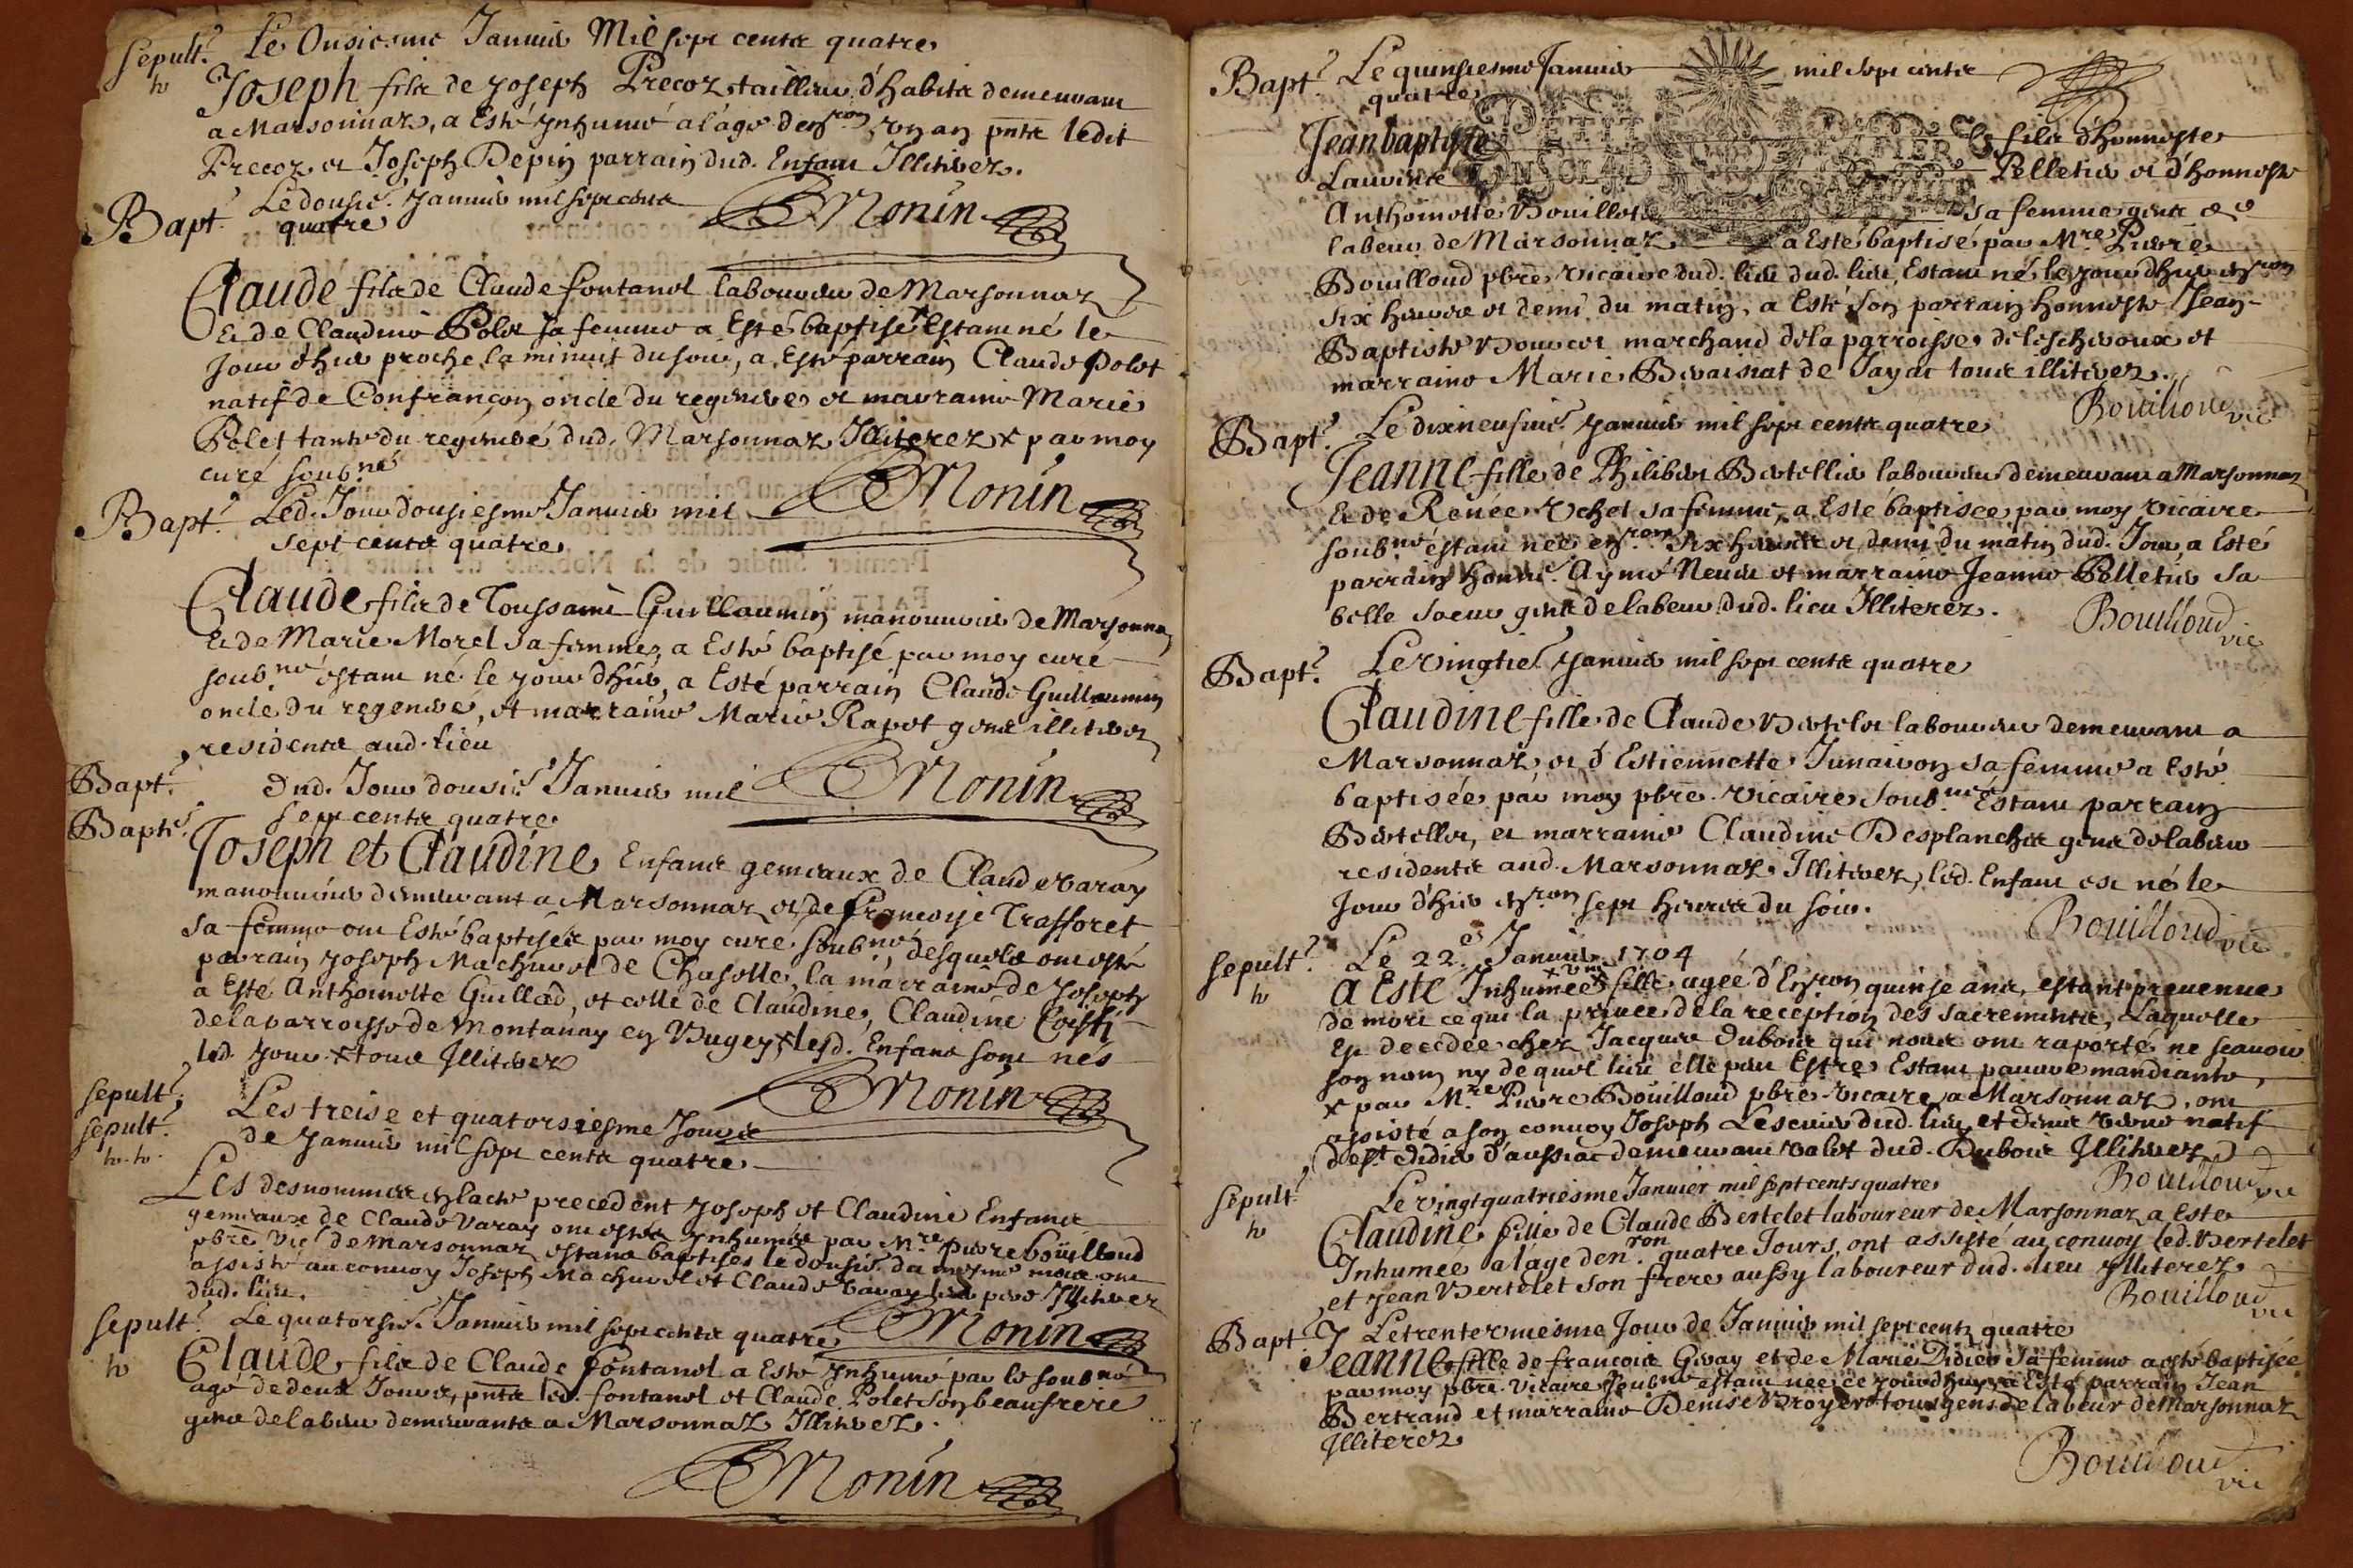 Sepult.e Le Onsiesme Januier Mil sept cents quatre
Joseph fils de Joseph Precoz tailleur d'habits demeurant
a Marsonnaz, a Esté Inhumé a l'âge d'enron vn an pnts ledit
Precoz et Joseph Depin parrain dud. Enfant Illiterez.
Bapt. Le dousie. Januier mil sept cents
quatre
Monin
Claude fils de Claude fontanel laboureur de Marsonnaz
Et de Claudine Polet sa femme a Esté baptisé x Estant né le
Jour d'hier proche la minuit du soir, a Esté parrain Claude Polet
natif de Confrançon oncle du regeneré et marraine Marie
Polet tante du regeneré dud. Marsonnaz Illiterez x par moy
curé soub.né
Monin
Bapt.e Led. Jour dousiesme Januier mil
sept cents quatre
Claude fils de Toussaint Guillaumin manouurier de Marsonna
Et de Marie Morel sa femme, a Esté baptisé par moy curé
soub.né estant né le jour d'hier, a Esté parrain Claude Guillaumin
oncle du regeneré, et marraine Marie Rapet gens illiterez
residents aud. lieu
Monin
Bapt.e Dud. Jour dousie. Januier mil
Bapte. sept cents quatre
Joseph et Claudine Enfants gemeaux de Claude Varay
manouurier demeurant a Marsonnaz et de françoise Trafforet
sa femme ont Esté baptisés par moy curé soub.né, desquels ont esté
parrain Joseph Machurel de Chaselle, la marraine de Joseph
a Esté Anthoinette Guillad, et celle de Claudine, Claudine
de la parroisse de Montanay en Bugey x lesd. Enfans sont nés
led. jour x tous Illiterez
Monin
Sepult.e
Sepult.e Les treise et quatorsiesme Jours
de Januier mil sept cents quatre
Les desnommés en l'acte precedent Joseph et Claudine Enfants
gemeaux de Claude Varay ont estés Inhumés par Mre. Pierre boüilloud
pbre. vic. de Marsonnaz estans baptises le dousie. du mesme mois ont
assisté au conuoy Joseph Machurel et Claude Varay led. pere Illiterez
dud. lieu.
Monin
Sepult.e Le quatorsie. Januier mil sept cents quatre
Claude fils de Claude Fontanel a Esté Inhumé par le soubné
agé de deux Jours, pnts led. fontanel et Claude Polet son beaufrere
gens de labeur demeurants a Marsonnaz Illiterez.
Monin
Bapt.e Le quinsiesme Januier mil sept cents
quatre
Jean baptiste fils d'honneste
Laurent Pelletier et d'honneste
Anthoinette Bouillot sa femme gens de
labeur de Marsonnaz a Esté baptisé par Mre. Pierre
Bouilloud pbre. vicaire dud. lieu dud. lieu, Estant né le jour d'hier enron
six heures et demi du matin, a Esté son parrain honneste Jean-
Baptiste Bouuet marchand de la parroisse de lescheroux et
marraine Marie Breuaisiat de Jayac tous illiterez.
Bouilloud vic
Bapt.e Le dixneufuie. Januier mil sept cents quatre
Jeanne fille de Philibert Bertellier laboureur demeurant a Marsonnaz
Et de Renée Vchet sa femme, a Esté baptisée par moy vicaire
soub.né estant née enron six heures et demy du matin dud. Jour, a Esté
parrain honne. Aymé Neuier et marraine Jeanne Pelletier sa
belle soeur gens de labeur dud. lieu Illiterez.
Bouilloud vic
Bapt.e Le vingtie. Januier mil sept cents quatre
Claudine fille de Claude Bertelet laboureur demeurant a
Marsonnaz et d'Estiennette Junairon sa femme a Esté
baptisée par moy pbre. vicaire soub.né Estant parrain
Bertellet, et marraine Claudine Desplanches gens de labeur
residents aud. Marsonnaz Illiterez, led. Enfant est né le
Jour d'hier enron sept heures du soir.
Bouilloud vic
Sepult.e Le 22.e Januier 1704
A Esté Inhumée x vne fille agée d'Enron quinse ans, estant preuenue
de mort ce qui la priuée de la reception des sacrements, Laquelle
Est decedée chez Jacques Dubois qui nous ont raporté ne scauoir
son nom ny de quel lieu elle peu Estre Estant pauure mandiante,
x par Mre. Pierre Bouilloud pbre. vicaire a Marsonnaz, ont
assisté a son conuoy Joseph Lescuier dud. lieu et Denis natif
de St. didier d'aussiat demeurant valet dud. Dubois Illiterez
Bouilloud vic
Sepult.e Le vingt quatriesme Januier mil sept cents quatre
Claudine fille de Claude Bertelet laboureur de Marsonnaz a Este
Inhumée a lâge denron. quatre Jours, ont assisté au conuoy led. Bertelet
et Jean Bertelet son frere aussy laboureur dud. lieu Illiterez.
Bouilloud vic
Bapt. Le trente vniesme Jour de Januier mil sept cents quatre
Jeanne fille de françois Giray et de Marie Didier sa femme a esté baptisée
par moy pbre. vicaire soub.né estant née ce jourd'huy, a Esté parrain Jean
Bertrand et marraine Denise Broyer tous gens de labeur de Marsonnaz
Illiterez
Bouilloud vic